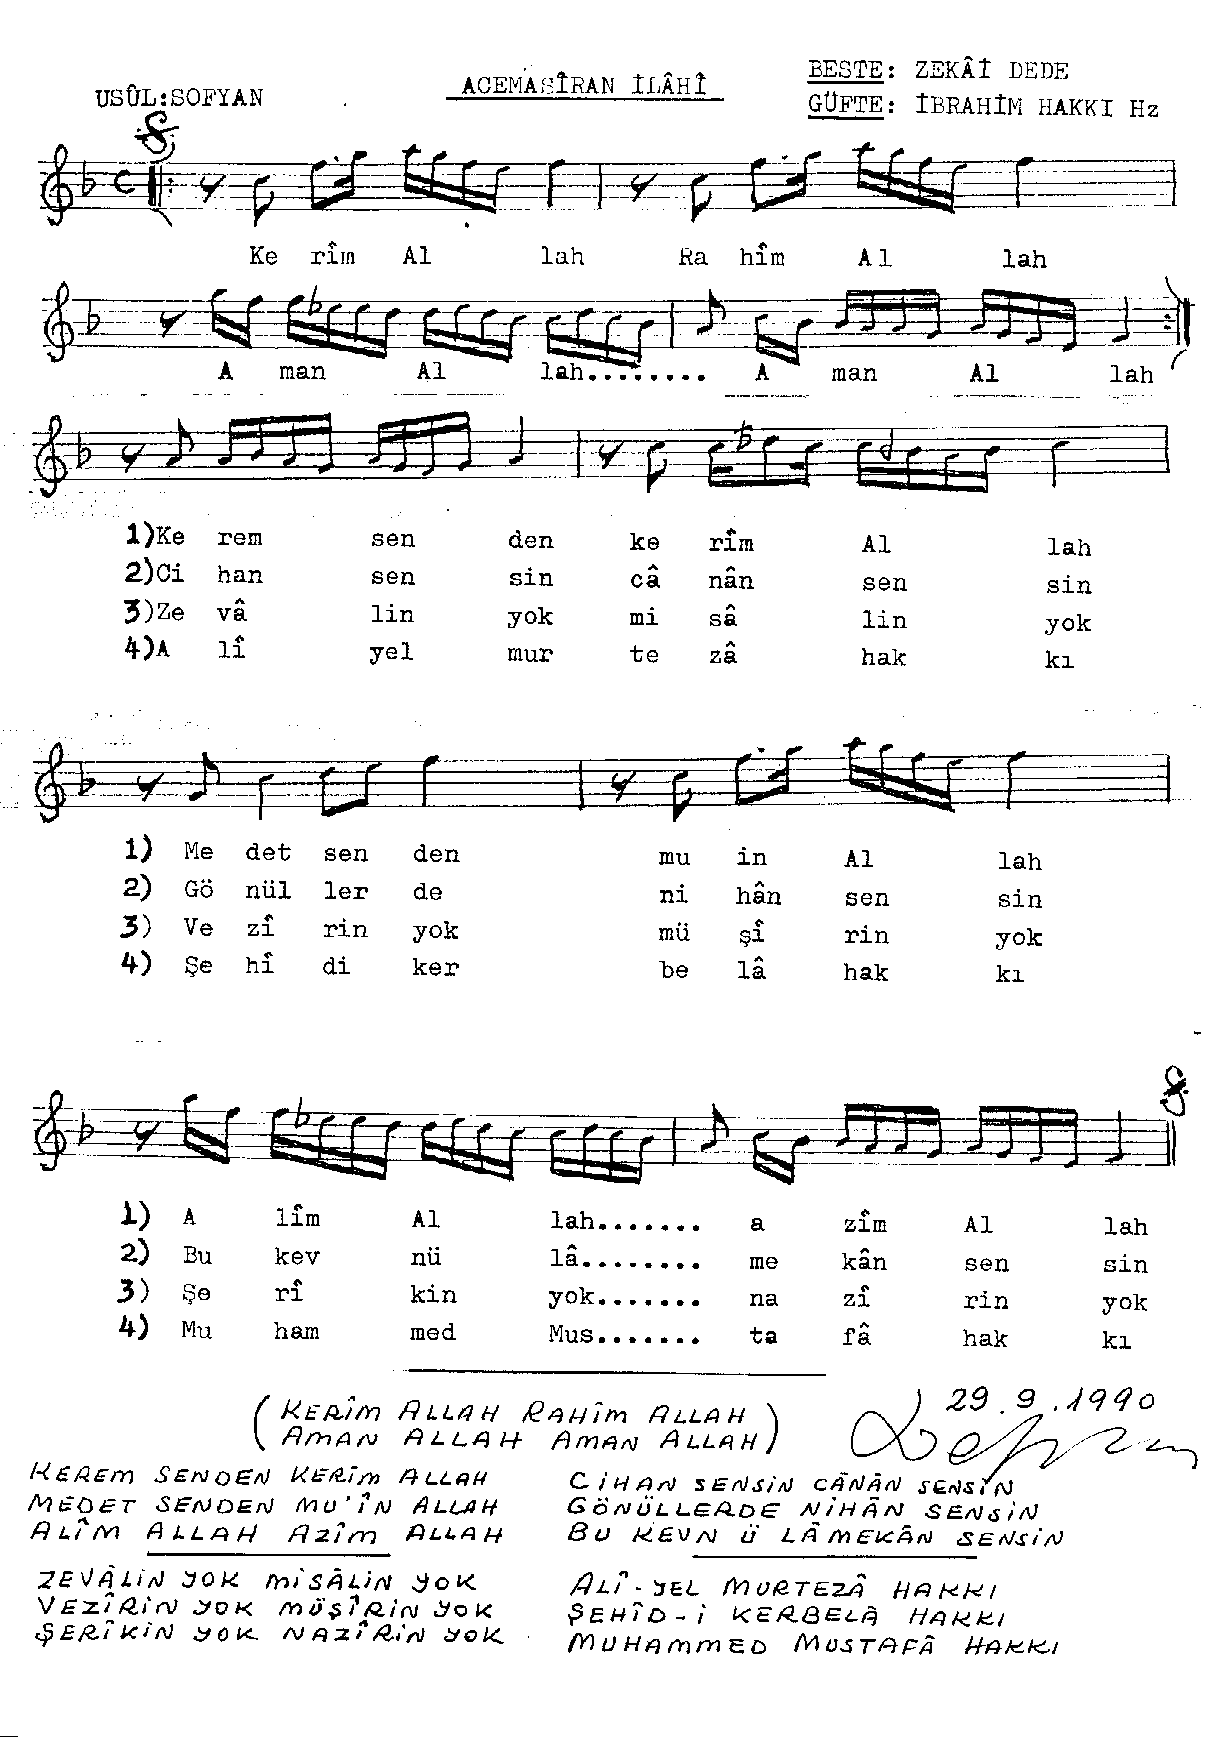 BESTE: ZEKÂİ DEDE
USÛL:SOFYAN ACEMAŞÎRAN İLÂHÎ
GÜFTE: İBRAHİM HAKKI Hz
Ke rîm Al lah Ra hîm Al lah
A man Al lah........ A man Al lah
1)Ke rem sen den ke rîm Al lah
2)Ci han sen sin câ nân sen sin
3)Ze vâ lin yok mi sâ lin yok
4)A lî yel mur te zâ hak kı
1) Me det sen den mu in Al lah
2) Gö nül ler de ni hân sen sin
3) Ve zî rin yok mü şî rin yok
4) Şe hî di ker be lâ hak kı
1) A lîm Al lah....... a zîm Al lah
2) Bu kev nü lâ........ me kân sen sin
3) Şe rî kin yok....... na zî rin yok
4) Mu ham med Mus....... ta fâ hak kı
29.9.1990
(KERÎM ALLAH RAHÎM ALLAH
AMAN ALLAH AMAN ALLAH)
KEREM SENDEN KERÎM ALLAH
MEDET SENDEN MU'ÎN ALLAH
ALÎM ALLAH AZÎM ALLAH
CİHAN SENSİN CÂNÂN SENSİN
GÖNÜLLERDE NİHÂN SENSİN
BU KEVN Ü LÂMEKÂN SENSİN
ZEVÂLİN YOK MİSÂLİN YOK
VEZÎRİN YOK MÜŞÎRİN YOK
ŞERÎKİN YOK NAZÎRİN YOK
ALÎ-YEL MURTEZÂ HAKKI
ŞEHÎD-İ KERBELÂ HAKKI
MUHAMMED MUSTAFÂ HAKKI